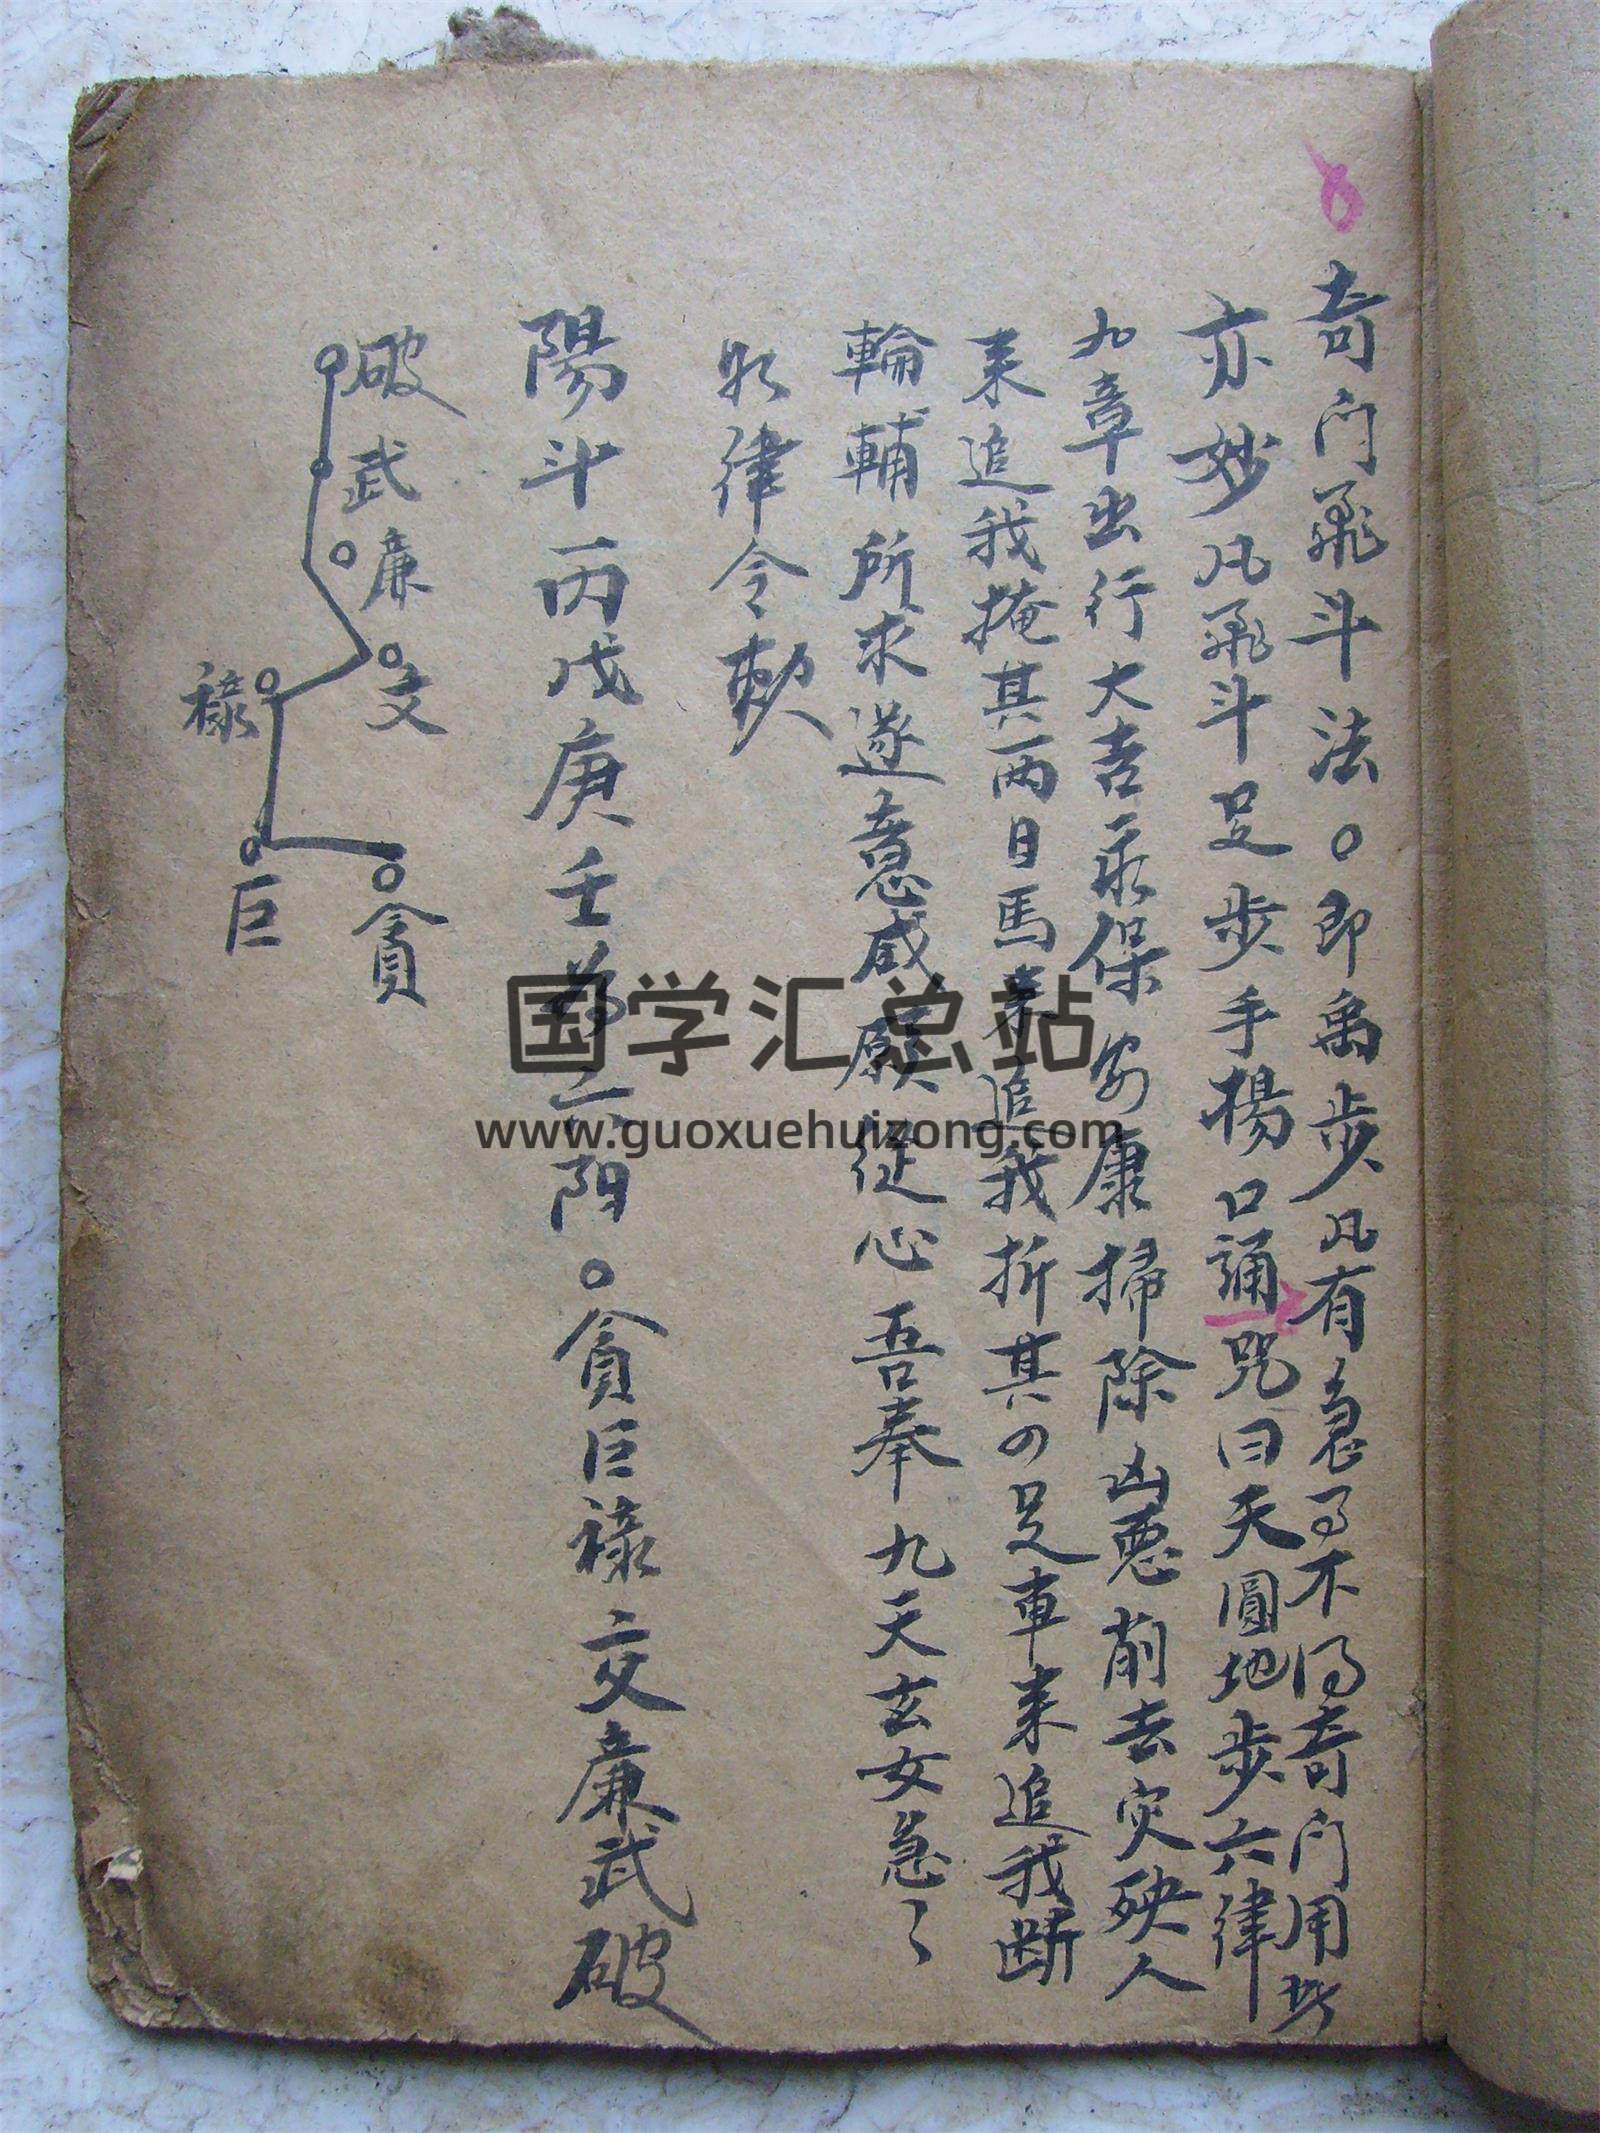 奇门飛斗法。即禹步凡有急了不得奇门用此
亦妙凡飛斗足步手揚口誦咒曰天圓地步六律
九章出行大吉永保安康掃除凶惡削去灾殃人
来追我掩其两目馬来追我折其四足車来追我断
輪輔所求遂意咸願從心吾奉九天玄女急々
如律令敕
陽斗丙戊庚壬為六阳。貪巨禄文廉武破
破
武
廉
文
禄
巨
貪
国学汇总站
www.guoxuehuizong.com